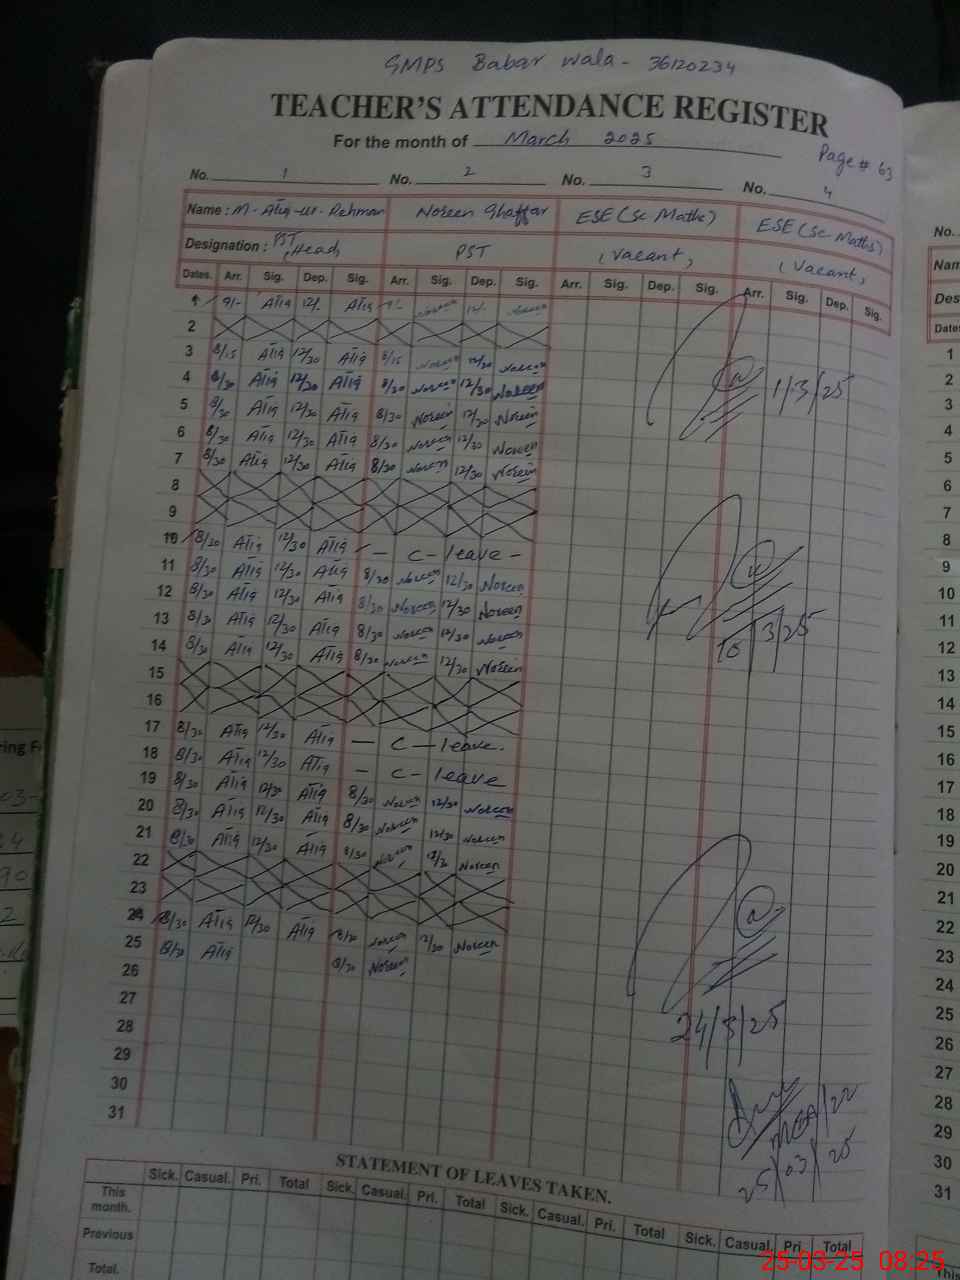 GMPS Babar wala - 36120234
TEACHER'S ATTENDANCE REGISTER
For the month of March 2025
Page # 63
No. 1 No. 2 No. 3 No. 4
Name : M-Atiq-ur-Rehman Noreen Ghaffar ESE (Sc Maths) ESE (Sc Maths)
Designation : PST, Head PST (Vacant) (Vacant)
Dates. Arr. Sig. Dep. Sig. Arr. Sig. Dep. Sig. Arr. Sig. Dep. Sig. Arr. Sig. Dep. Sig.
1 9/- Atiq 12/- Atiq 9/- Noreen 12/- Noreen
2
3 8/15 Atiq 12/30 Atiq 8/15 Noreen 12/30 Noreen
4 8/30 Atiq 12/30 Atiq 8/30 Noreen 12/30 Noreen
1/3/25
5 8/30 Atiq 12/30 Atiq 8/30 Noreen 12/30 Noreen
6 8/30 Atiq 12/30 Atiq 8/30 Noreen 12/30 Noreen
7 8/30 Atiq 12/30 Atiq 8/30 Noreen 12/30 Noreen
8
9
10 8/30 Atiq 12/30 Atiq - C - leave -
11 8/30 Atiq 12/30 Atiq 8/30 Noreen 12/30 Noreen
12 8/30 Atiq 12/30 Atiq 8/30 Noreen 12/30 Noreen
13 8/30 Atiq 12/30 Atiq 8/30 Noreen 12/30 Noreen
10/3/25
14 8/30 Atiq 12/30 Atiq 8/30 Noreen 12/30 Noreen
15
16
17 8/30 Atiq 12/30 Atiq - C - leave.
18 8/30 Atiq 12/30 Atiq - C - leave
19 8/30 Atiq 12/30 Atiq 8/30 Noreen 12/30 Noreen
20 8/30 Atiq 12/30 Atiq 8/30 Noreen 12/30 Noreen
21 8/30 Atiq 12/30 Atiq 8/30 Noreen 12/30 Noreen
22
23
24 8/30 Atiq 12/30 Atiq 8/30 Noreen 12/30 Noreen
25 8/30 Atiq 8/30 Noreen
26
27
24/3/25
28
29
30
31
MEA/22
25/03/25
STATEMENT OF LEAVES TAKEN.
Sick. Casual. Pri. Total Sick. Casual. Pri. Total Sick. Casual. Pri. Total Sick. Casual. Pri. Total
This month.
Previous
Total.
No.
Nam
Des
Dates
1
2
3
4
5
6
7
8
9
10
11
12
13
14
15
16
17
18
19
20
21
22
23
24
25
26
27
28
29
30
31
This
25-03-25 08:25